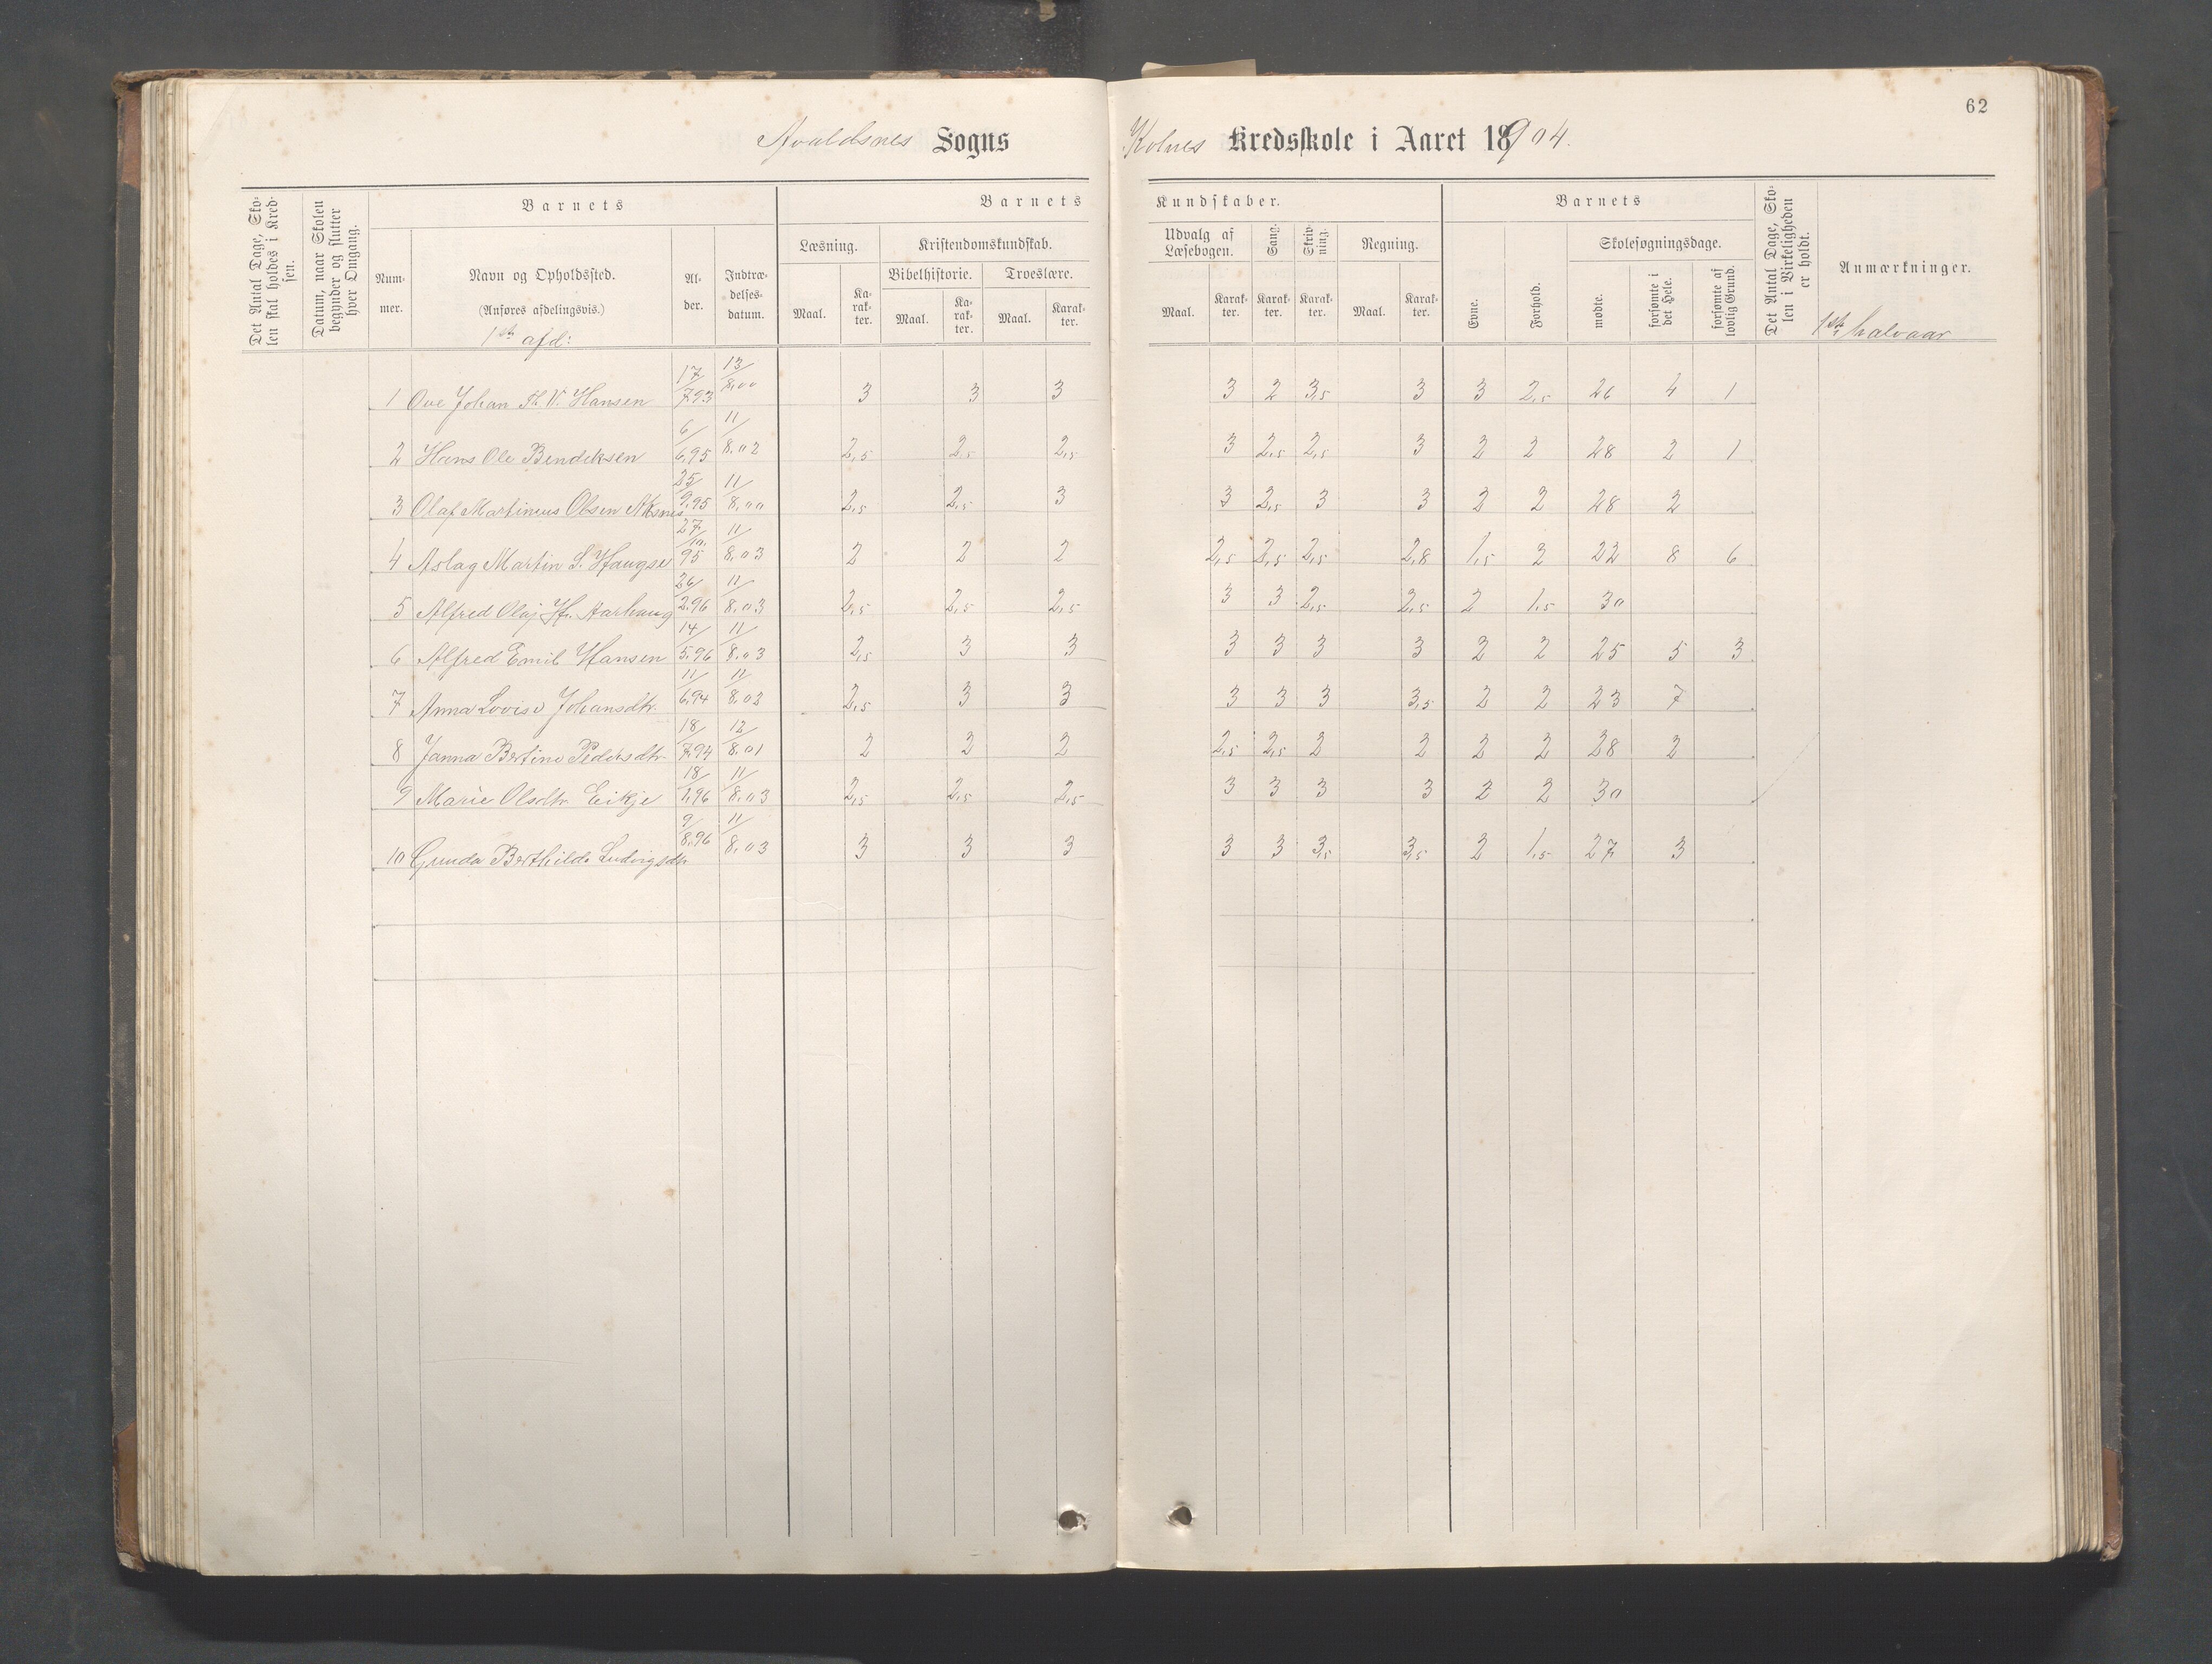 62
Avaldsnes Sogns
Kolnes Kredsskole i Aaret 18904.
Det Antal Dage, Sko-
len skal holdes i Kred-
sen.
Datum, naar Skolen
begynder og slutter
hver Omgang.
Barnets
Num-
mer.
Navn og Opholdssted.
(Anføres afdelingsvis.)
1ste afd:
Al-
der.
Indtræ-
delses-
datum.
Barnets
Læsning.
Maal.
Ka-
rak-
ter.
Kristendomskundskab.
Bibelhistorie.
Maal.
Ka-
rak-
ter.
Troeslære.
Maal.
Karak-
ter.
Kundskaber.
Udvalg af
Læsebogen.
Maal.
Karak-
ter.
Sang.
Karak-
ter.
Skriv-
ning.
Karak-
ter.
Regning.
Maal.
Karak-
ter.
Barnets
Evne.
Forhold.
Skolesøgningsdage.
mødte.
forsømte i
det Hele.
forsømte af
lovlig Grund.
Det Antal Dage, Sko-
len i Virkeligheden
er holdt.
Anmærkninger.
1ste halvaar
1 Ove Johan Th. V. Hansen 17/7.93 13/8.00 3 3 3 3 2 3,5 3 3 2,5 26 4 1
2 Hans Ole Bendiksen 6/6.95 11/8.02 2,5 2,5 2,5 3 2,5 2,5 3 2 2 28 2 1
3 Olaf Martinius Olsen Aksnes 25/9.95 11/8.00 2,5 2,5 3 3 2,5 3 3 2 2 28 2
4 Aslag Martin S. Haugse 27/10.95 11/8.03 2 2 2 2,5 2,5 2,5 2,8 1,5 2 22 8 6
5 Alfred Olaj H. Aarhaug 26/2.96 11/8.03 2,5 2,5 2,5 3 3 2,5 2,5 2 1,5 30
6 Alfred Emil Hansen 14/5.96 11/8.03 2,5 3 3 3 3 3 3 2 2 25 5 3
7 Anna Lovise Johansdtr. 11/6.94 11/8.02 2,5 3 3 3 3 3 3,5 2 2 23 7
8 Janna Bertine Pedersdtr. 18/7.94 12/8.01 2 2 2 2,5 2,5 2 2 2 2 28 2
9 Marie Olsdtr. Eikje 18/1.96 11/8.03 2,5 2,5 2,5 3 3 3 3 2 2 30
10 Gunda Berthilde Ludvigsdtr 9/8.96 11/8.03 3 3 3 3 3 3,5 3,5 2 1,5 27 3